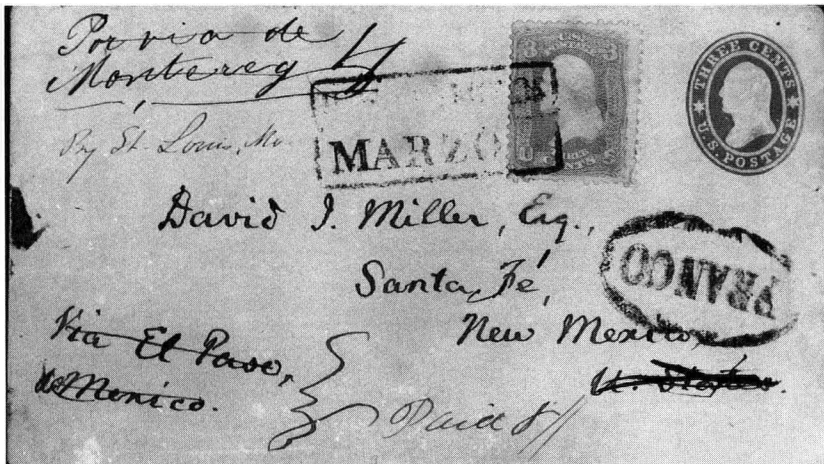 Por via de
Monterey
By St. Louis, Mo.
MARZO
3 U.S. 3
POSTAGE
U S
CENTS
THREE CENTS
U.S. POSTAGE
David J. Miller, Esq.,
Santa Fé,
New Mexico,
U. States.
FRANCO
Via El Paso,
de Mexico.
Paid